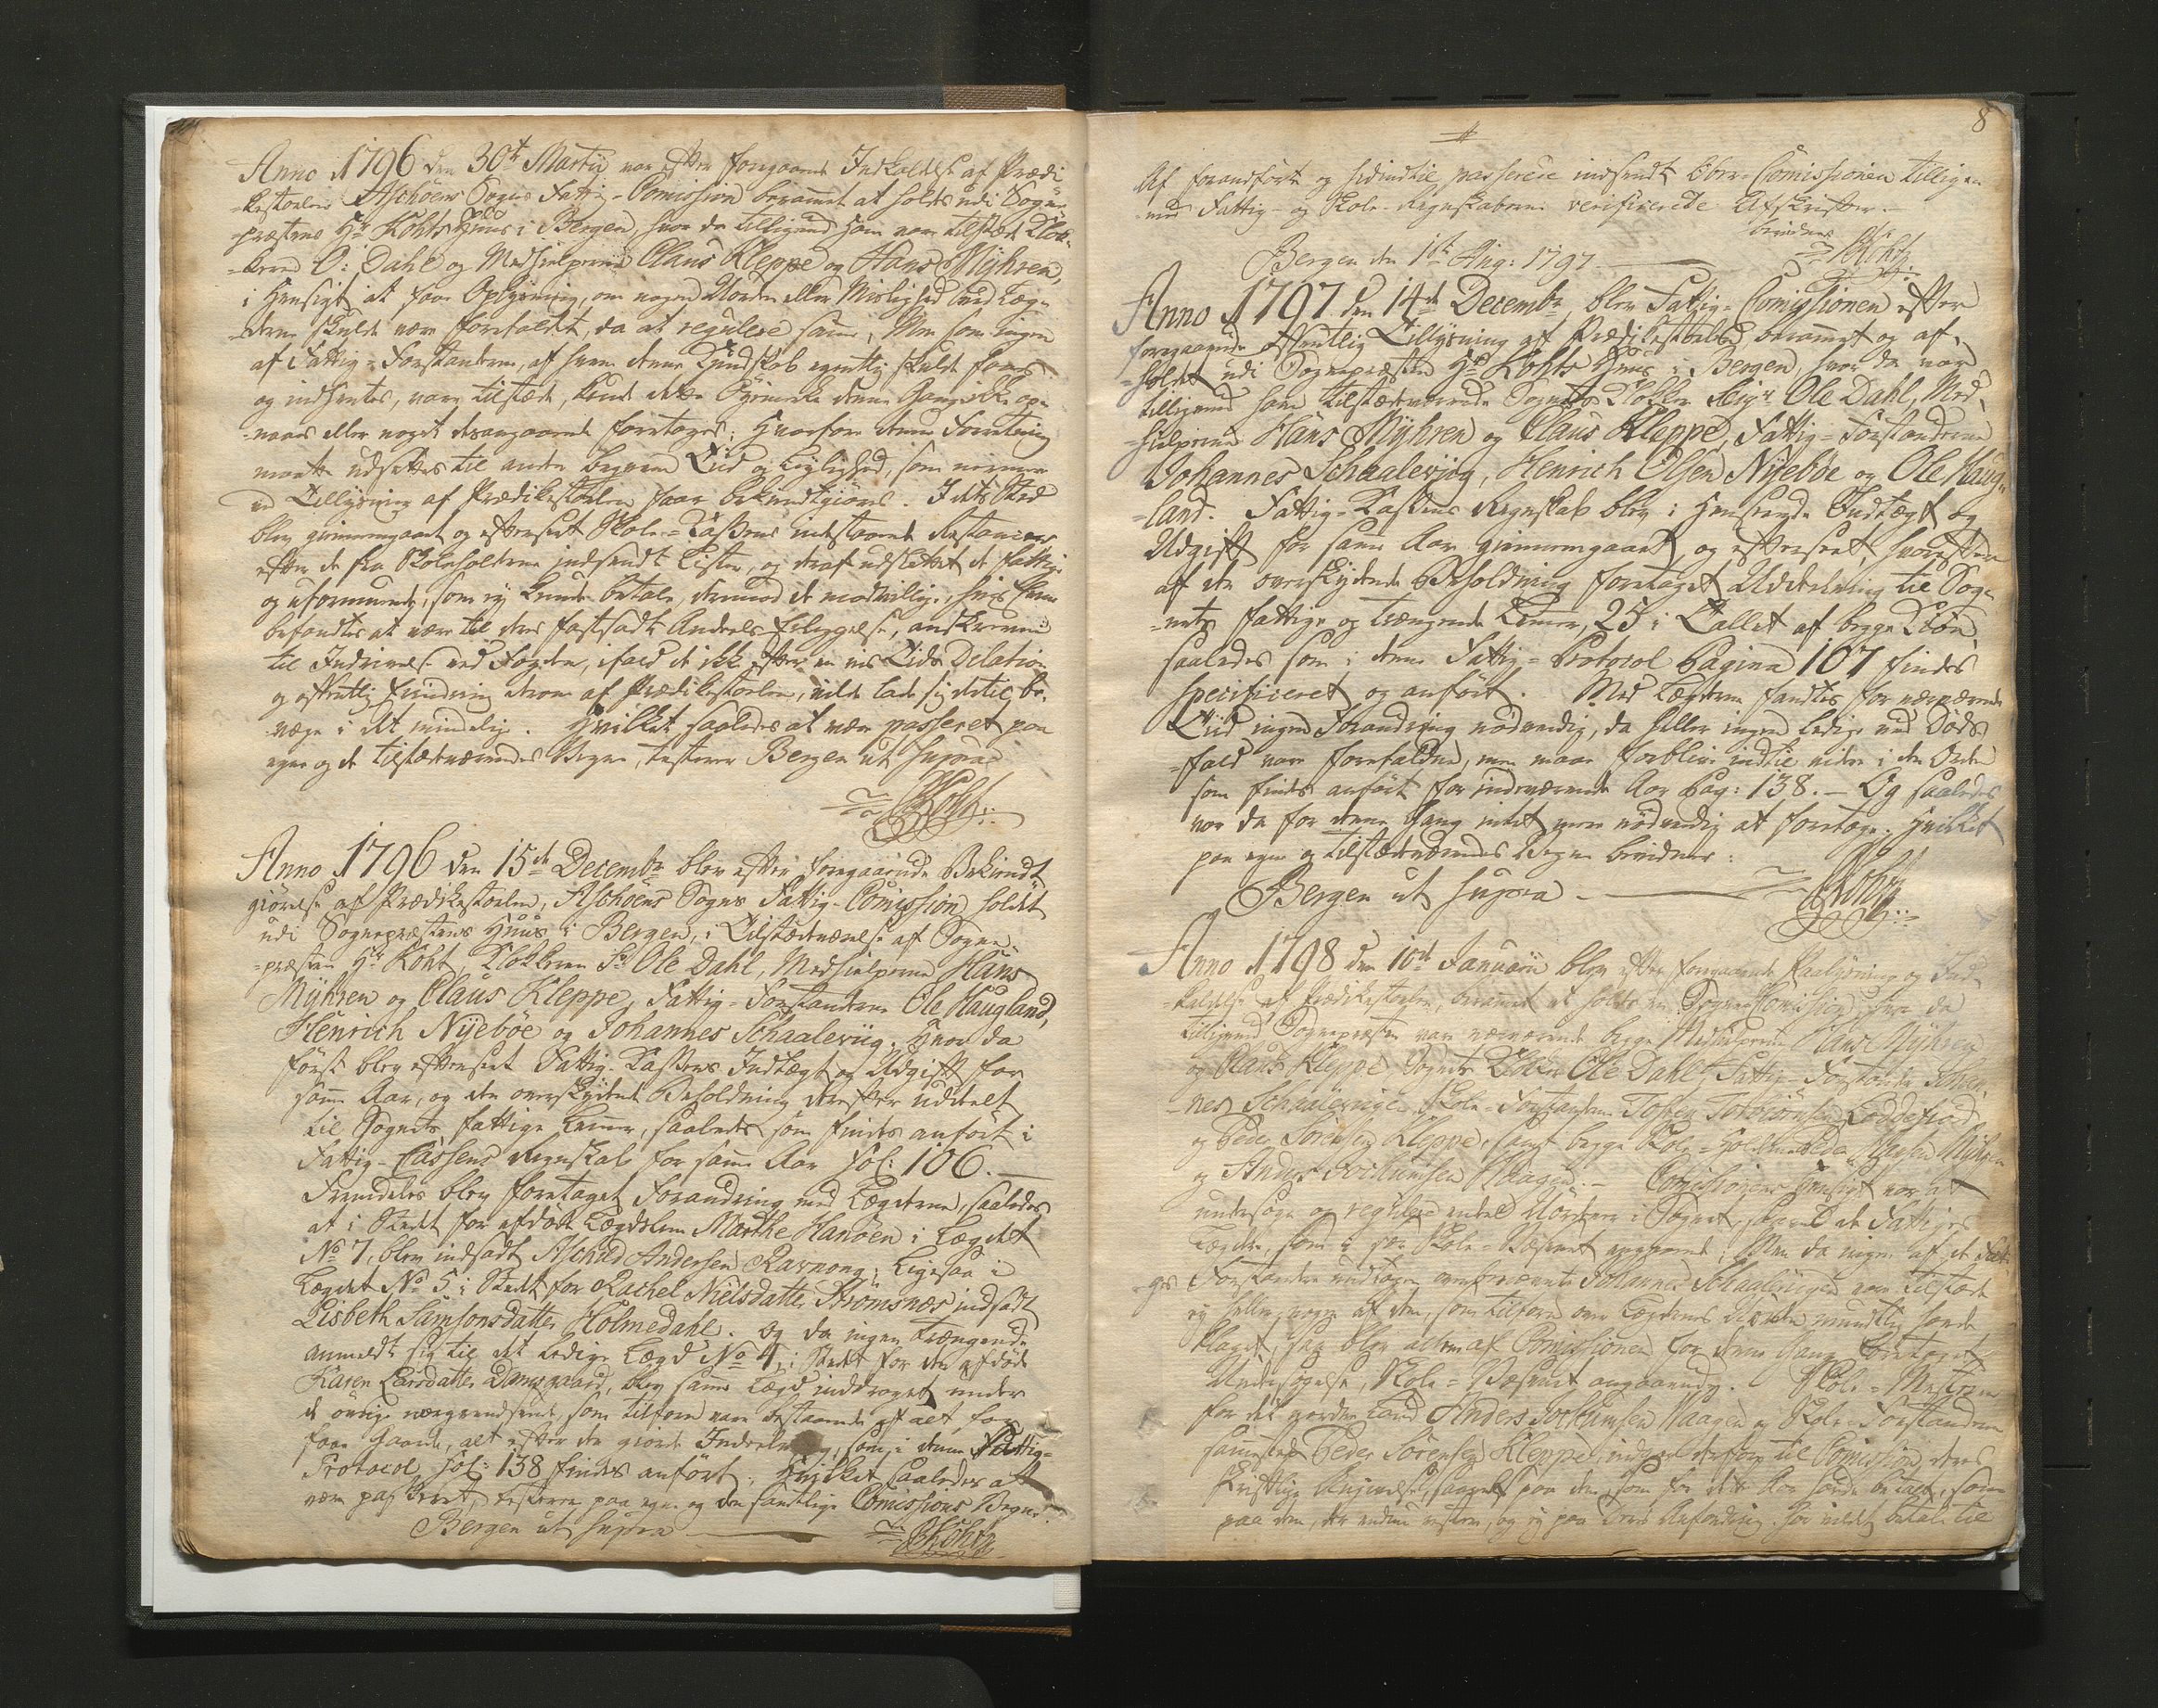 Anno 1796 den 30te Martii var efter foregaaende Indkaldelse af Prædi-
-kestoelen Aschöens Sogns Fattig-Comission berammet at holdes udi Sogne-
-præstens Hr Kohts Huus i Bergen, hvor da tilligemed ham var tilstede Klok-
-keren O: Dahl og Medhielperne Claus Kleppe og Hans Myhren,
i Hensigt at faae Oplysning, om nogen Uorden eller Mislighed med Læg-
-derne skulde være forefaldet, da at regulere samme; Men som ingen
af Fattig-Forstanderne, af hvem denne Kundskab egentlig skulde haves
og indhentes, vare tilstæde, kunde dette Øyemerke denne Gang ikke op-
-naaes eller noget desangaaende foretages; Hvorfore denne Forretning
maatte udsættes til anden beqvem Tiid og Leylighed, som nærmere
ved Tillysning af Prædikestoelen faaer bekiendtgiøres. I dets Sted
blev giennemgaaet og efterseet Skole-Kassens indestaaende Restancer
efter de fra Skoleholderne indsendte Lister, og deraf udslettet de fattige
og uformuende, som ej kunde betale, derimod de modvillige, hvis Evne
befandtes at være til deres fastsadte Andeels Erleggelse, antegnede
til Inddrivelse ved Fogden, ifald de ikke efter en vis Tids Dilation
og offentlig Erindring derom af Prædikestoelen, vilde lade sig dertil be-
væge i det mindelige. Hvilket saaledes at være passeret paa
egne og de tilstædeværendes Vegne, testerer Bergen ut supra
Koht
Anno 1796 den 15de Decembr blev efter foregaaende Bekiendt-
giørelse af Prædikestoelen, Aschöens Sogns Fattig-Comission holdet
udi Sognepræstens Huus i Bergen, i Tilstædeværelse af Sogne-
-præsten Hr Koht, Klokkeren Sr Ole Dahl, Medhielperne Hans
Myhren og Claus Kleppe, Fattig-Forstanderne Ole Haugland,
Henrich Nyeböe og Johannes Schaaleviig. Hvor da
først blev efterseet Fattig-Kassens Indtægt og Udgift for
samme Aar, og den overskydende Beholdning derefter uddeelt
til Sognets fattige Lemmer, saaledes som findes anført i
Fattig-Cassens Regnskab for samme Aar fol: 106. —
Fremdeles blev foretaget Forandring med Lægderne, saaledes
at i Stedet for afdøde Lægdslem Marthe Hanöen i Lægdet
No 7, blev indsadt Aschild Andersen Ravnong; Ligesaa i
Lægdet No 5 i Stedet for Rachel Nielsdatter Strömsnæs indsadt
Lisbeth Samsonsdatter Holmedahl. Og da ingen trængende
anmeldte sig til det ledige Lægd No 4, i Stedet for den afdøde
Karen Larsdatter Damsgaard, blev samme Lægd inddraget under
de øvrige nærgrændsende, som tilforn vare bestaaende af alt for
faae Gaarde, alt efter den giorde Inddeeling, som i denne Fattig-
Protocol fol: 138 findes anført. Hvilket saaledes at
være passeret, testerer paa egne og den samtlige Comissions Vegne.
Bergen ut supra — Koht
8
Af foranførte og hidindtil passerede indsendt Over-Comissionen tillige-
-med Fattig- og Skole-Regnskaberne verificerede Afskrifter.—
bevidner
Bergen den 1ste Aug: 1797 — Koht
Anno 1797 den 14de Decembr blev Fattig-Comissionen efter
foregaaende offentlig Tillysning af Prædikestoelen berammet og af-
-holdet udi Sognepræsten Hr Kohts Huus i Bergen, hvor da var
tilligemed ham tilstædeværende Sognets Klokker Seigr Ole Dahl, Med-
-hielperne Hans Myhren og Claus Kleppe, Fattig-Forstanderne
Johannes Schaaleviig, Henrich Olsen Nyeböe og Ole Haug-
-land. Fattig-Kassens Regnskab blev i Henseende Indtægt og
Udgift for samme Aar giennemgaaet, og efterseet, hvorefter
af den overskydende Beholdning foretaget Uddeeling til Sog-
-nets fattige og trængende Lemmer, 25 i Tallet af begge Kiøn,
saaledes som i denne Fattig-Protocol Pagina 107 findes
specificeret og anført. Med Lægderne fandtes for nærværende
Tiid ingen Forandring nødvendig, da heller ingen ledige ved Døds-
-fald vare forefaldne, men maae forblive indtil videre i den Orden
som findes anført for indeværende Aar Pag: 138. — Og saaledes
var da for denne Gang intet mere nødvendig at foretage. Hvilket
paa egne og tilstædeværendes Vegne bevidner:
Bergen ut supra — Koht
Anno 1798 den 10de Januarii blev efter foregaaende Paalysning og Ind-
-kaldelse af Prædikestoelen, berammet at holdes en Sogne-Comission, hvor da
tilligemed Sognepræsten vare nærværende begge Medhielperne Hans Myhren
og Claus Kleppe, Sognets Klokker Ole Dahl, Fattig-Forstander Johan-
-nes Schaaleviig, Skole-Forstanderne Torbiörnsen Loddefiord
og Peder Sörensen Kleppe, samt begge Skole-Holderne Peder Myhren
og Anders Jochumsen Waagen. — Comissionens Hensigt var at
undersøge og regulere endeel Uordner i Sognet, saavel de Fattiges
Lægder, som Skole-Væsenet angaaende; Men da ingen af de Fatti-
ges Forstandere undtagen ovenbenævnte Johannes Schaaleviigen vare tilstæde
ej heller nogen af dem, som tilforn over Lægdernes Uorden mundtlig havde
klaget, saa blev alene af Comissionen for denne Gang foretaget
Undersøgelse, Skole-Væsenet angaaende. Skole-Mesteren
for det nordre Land Anders Jochumsen Waagen og Skole-Forstanderen
sammesteds Peder Sörensen Kleppe, indgav derfor til Comission deres
skriftlige Angivelse, saavel paa dem, som for dette Aar havde betalt, som
paa dem, der endnu restere, og ej paa deres Anfordring har villet betale til